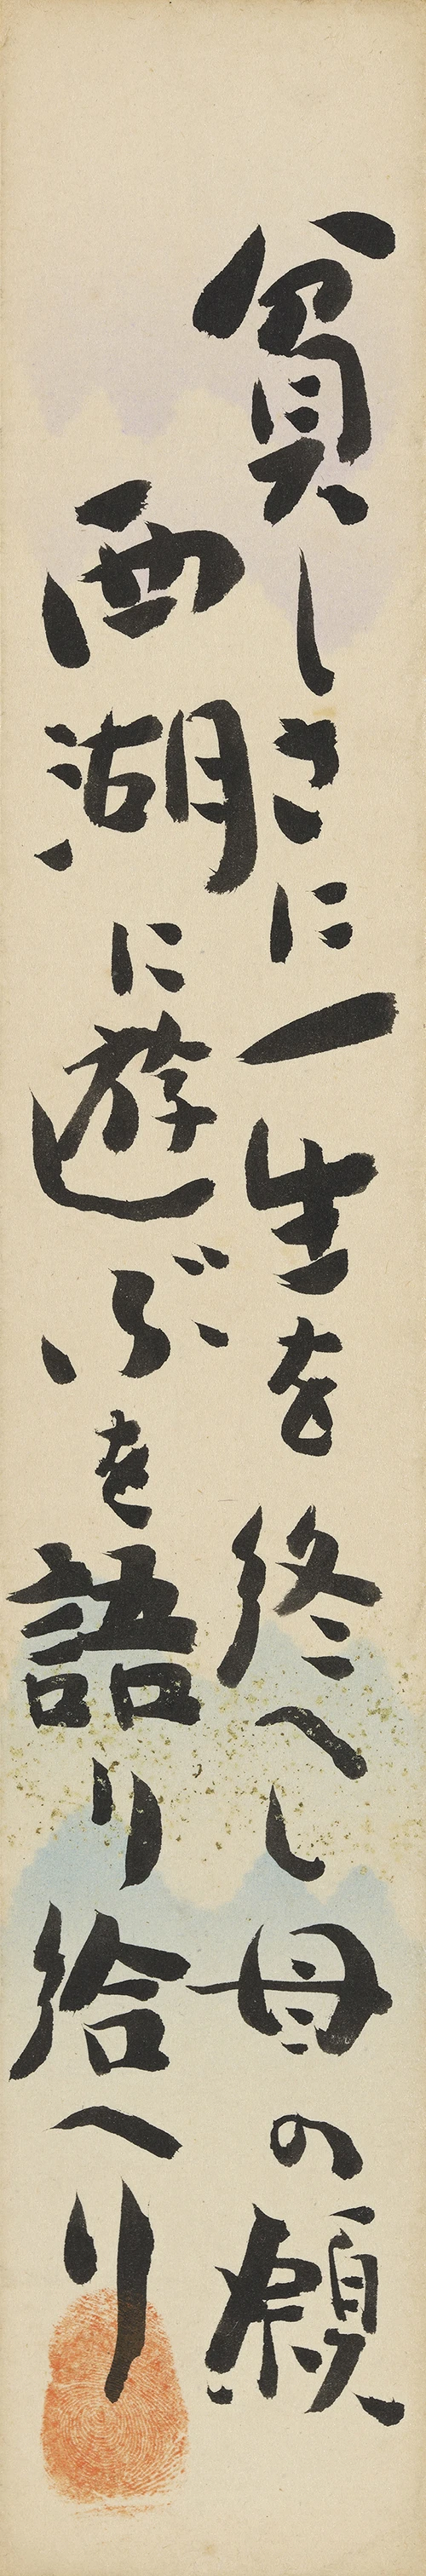 貧しさに一生を終へし母の願
西湖に遊ぶを語り給へり